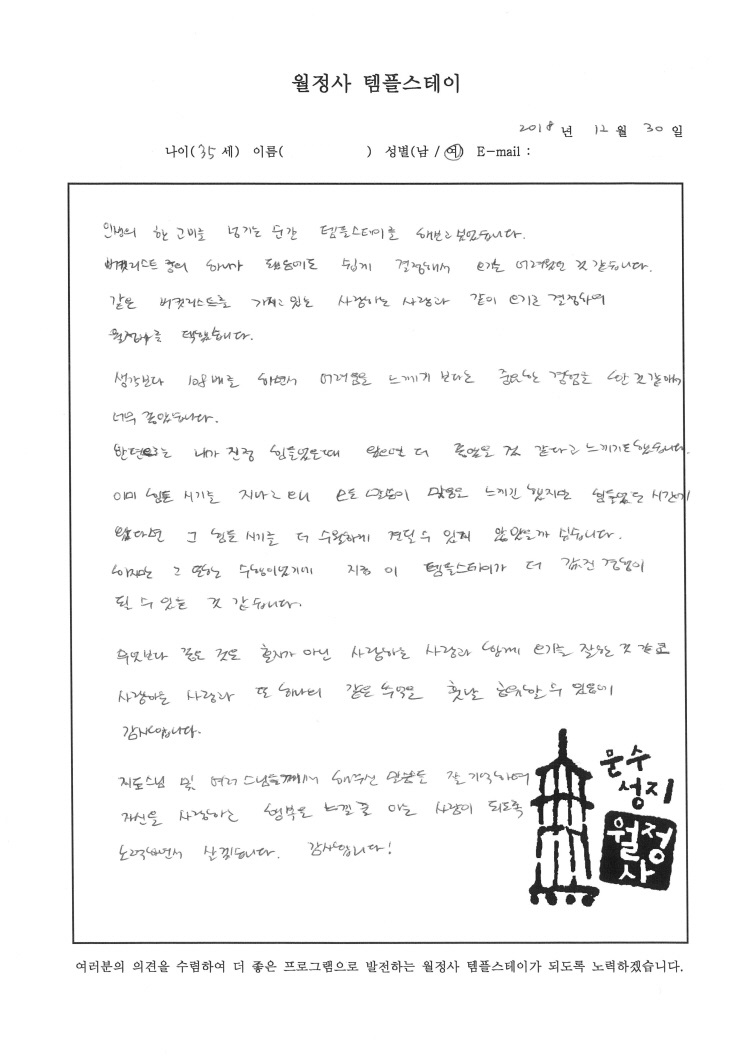 월정사 템플스테이
2018 년 12 월 30 일
나이(35 세) 이름( ) 성별(남 / 여) E-mail :
인생의 한 고비를 넘기는 순간 템플스테이를 해보고 싶었습니다.
버킷리스트 중의 하나가 됐음에도 쉽게 결정해서 오기는 어려웠던 것 같습니다.
같은 버킷리스트를 가지고 있는 사랑하는 사람과 같이 오기로 결정하여
월정사를 택했습니다.
생각보다 108배를 하면서 어려움을 느끼게 보다는 좋은 경험을 한 것 같아서
너무 좋았습니다.
한편으로는 내가 진정 힘들었을때 왔으면 더 좋았을 것 같다고 느끼기도 했습니다.
이미 힘든 시기를 지나고 오니 모든 말씀이 맞음은 느끼긴 했지만 힘들었던 시간에
왔다면 그 힘든 시기를 더 수월하게 견딜 수 있지 않았을까 싶습니다.
하지만 그 또한 수행이었기에 지금 이 템플스테이가 더 값진 경험이
될 수 있는 것 같습니다.
무엇보다 좋은 것은 혼자가 아닌 사랑하는 사람과 함께 오기를 잘한 것 같고
사랑하는 사람과 또 하나의 같은 추억을 훗날 회상할 수 있음에
감사합니다.
지도스님 및 여러 스님들께서 해주신 말씀들 잘 기억하여
자신을 사랑하고 행복을 느낄 줄 아는 사람이 되도록
노력하면서 살겠습니다. 감사합니다!
문수
성지
월정
사
여러분의 의견을 수렴하여 더 좋은 프로그램으로 발전하는 월정사 템플스테이가 되도록 노력하겠습니다.